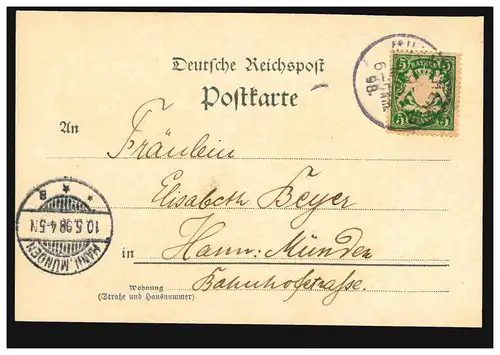 Deutsche Reichspost
Postkarte
An
Fräulein
Elisabeth Beyer
in Hann. Münden
Bahnhofstrasse.
Wohnung
(Straße und Hausnummer)
BAYERN
5 5
5 5
98
HANN. MÜNDEN
10.5.98 4-5N
* * 8